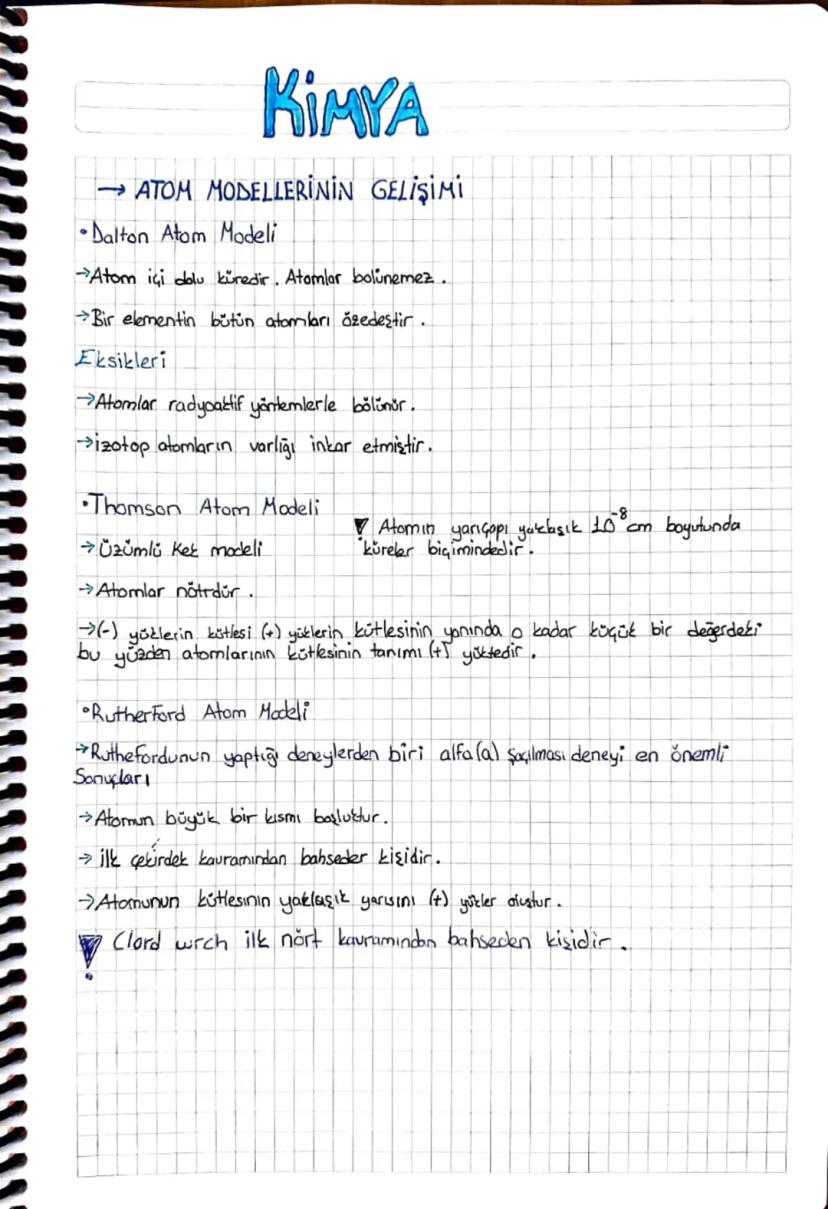 KİMYA
→ ATOM MODELLERİNİN GELİŞİMİ
•Dalton Atom Modeli
→Atom içi dolu küredir. Atomlar bolünemez.
→Bir elementin bütün atomları özedeştir.
Eksikleri
→Atomlar radyoaktif yöntemlerle bölünür.
→izotop atomların varlığı inkar etmiştir.
•Thomson Atom Modeli
▼ Atomın yarıçapı yaklaşık 10⁻⁸ cm boyutunda
→Üzümlü Kek modeli
küreler biçimindedir.
→Atomlar nötrdür.
→(-) yüklerin kütlesi (+) yüklerin kütlesinin yanında o kadar küçük bir değerdeki
bu yüzden atomlarının kütlesinin tanımı (+) yüktedir.
•Rutherford Atom Modeli
→Ruthefordunun yaptığı deneylerden biri alfa(a) saçılması deneyi en önemli
Sonuçları
→Atomun büyük bir kısmı boşluktur.
→ ilk çekirdek kavramından bahseder kişidir.
→Atomunun kütlesının yaklaşık yarısını (+) yükler
Clord wrch ilk nört kavramından bahseden kişidir.